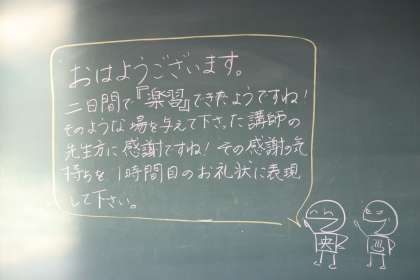 おはようございます。
二日間で『楽習』できたようですね!
そのような場を与えて下さった講師の
先生方に感謝ですね! その感謝の気
持ちを、1時間目のお礼状に表現
して下さい。
央